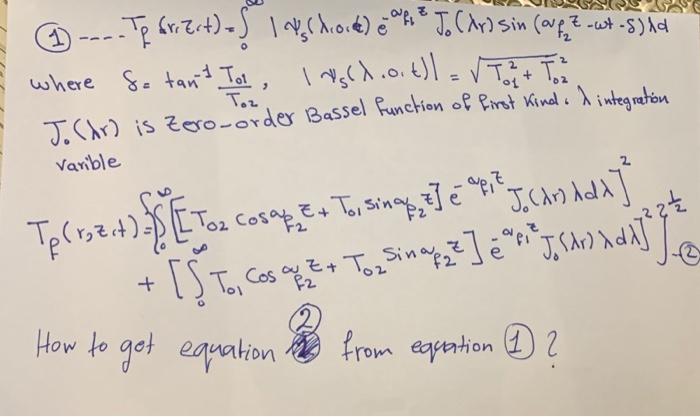 ① ---- T_p (r,z,t) = ∫₀^∞ |ν_s(λ,0,t) e^{-α_{p1} z} J₀(λr) sin (α_{p2} z - wt - δ) λd
where δ = tan⁻¹ T₀₁/T₀₂, |ν_s(λ,0,t)| = √(T₀₁² + T₀₂²)
J₀(λr) is Zero-order Bassel function of first Kind. λ integration
varible
T_p(r,z,t) = {[∫₀^∞ [T₀₂ cos α_{p2} z + T₀₁ sin α_{p2} z] e^{-α_{p1} z} J₀(λr) λdλ]²
+ [∫₀^∞ T₀₁ Cos α_{p2} z + T₀₂ Sin α_{p2} z] e^{-α_{p1} z} J₀(λr) λdλ]²}^{1/2} -②
How to get equation ② from equation ① ?